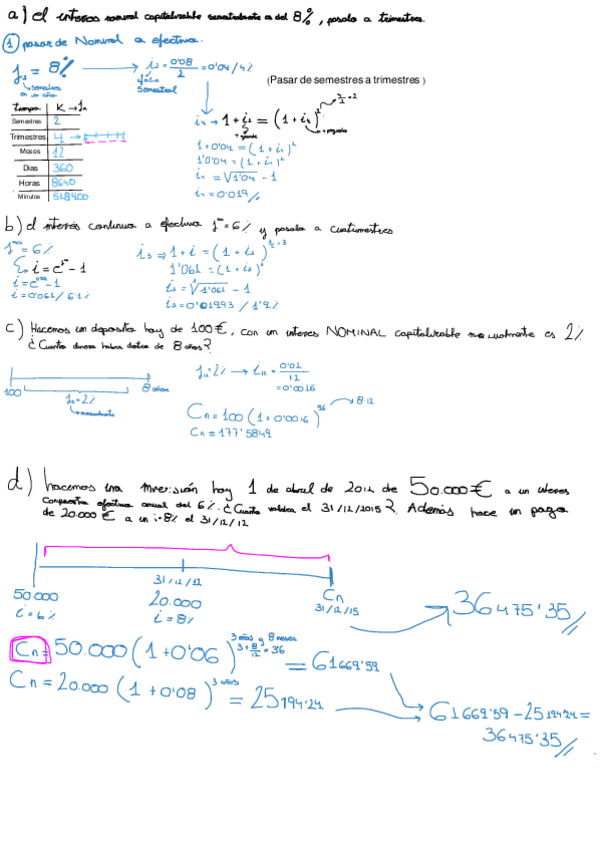 a) el interes nominal capitalizable semestralmente es del 8%, pasalo a trimestres.
① pasar de Nominal a efectiva.
J₂ = 8% → i₂ = 0'08/2 = 0'04 / 4%
semestres en un año
semestral
(Pasar de semestres a trimestres )
tiempo K → Jk
Semestres 2
Trimestres 4
Meses 12
Dias 360
Horas 8640
Minutos 518400
i₄ → 1 + i₂ = (1 + i₄)²
+ grande + pequeño
1 + 0'04 = (1 + i₄)²
1'04 = (1 + i₄)²
i₄ = √1'04 - 1
i₄ = 0'019%
b) el interés continuo a efectiva J∞ = 6% y pasalo a cuatrimestres
J∞ = 6%
i = e^J∞ - 1
i = e^0'06 - 1
i = 0'061 / 6'1%
i₃ → 1 + i = (1 + i₃)
1'061 = (1 + i₃)³
i₃ = ³√1'061 - 1
i₃ = 0'01993 / 1'9%
c) Hacemos un deposito hoy de 100€, con un interes NOMINAL capitalizable mensualmente es 2%
¿Cuanto dinero habra dentro de 8 años?
100 8 años
J₁₂ = 2%
mensualmente
J₁₂ = 2% → i₁₂ = 0'02/12
= 0'0016
Cn = 100 (1 + 0'0016)⁹⁶ → 8·12
Cn = 177'5849
d) hacemos una inversión hoy 1 de abril de 2012 de 50.000€ a un interes
compuesto efectivo anual del 6%. ¿Cuanto valdra el 31/12/2015? Además hace un pago
de 20.000€ a un i=8% el 31/12/12
31/12/12
50.000 20.000 Cn
i = 6% i = 8% 31/12/15
36475'35
Cn = 50.000 (1 + 0'06) = 61669'59
3 años y 8 meses
3 + 8/12 = 36
Cn = 20.000 (1 + 0'08)^3 años = 25194'24
61669'59 - 25194'24 =
36475'35